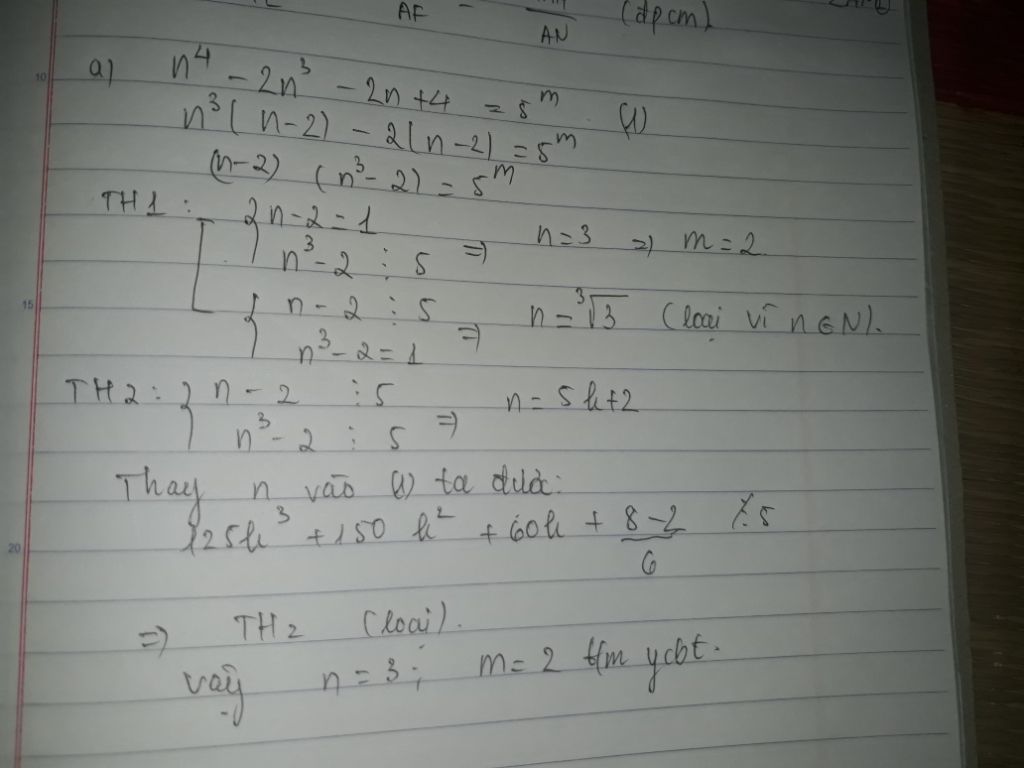 AF = / AN (đpcm)
10
a) n⁴ - 2n³ - 2n + 4 = 5ᵐ (1)
n³(n-2) - 2(n-2) = 5ᵐ
(n-2) (n³-2) = 5ᵐ
TH1: { n-2 = 1
n³-2 ⋮ 5 ⇒ n=3 ⇒ m=2
15
{ n-2 ⋮ 5
n³-2 = 1 ⇒ n = ³√3 (loại vì n∈N).
TH2: { n-2 ⋮ 5
n³-2 ⋮ 5 ⇒ n = 5k+2
Thay n vào (1) ta được:
125k³ + 150k² + 60k + 8-2 ⋮̸ 5
20
6
⇒ TH2 (loại).
vậy n = 3; m = 2 t/m ycbt.